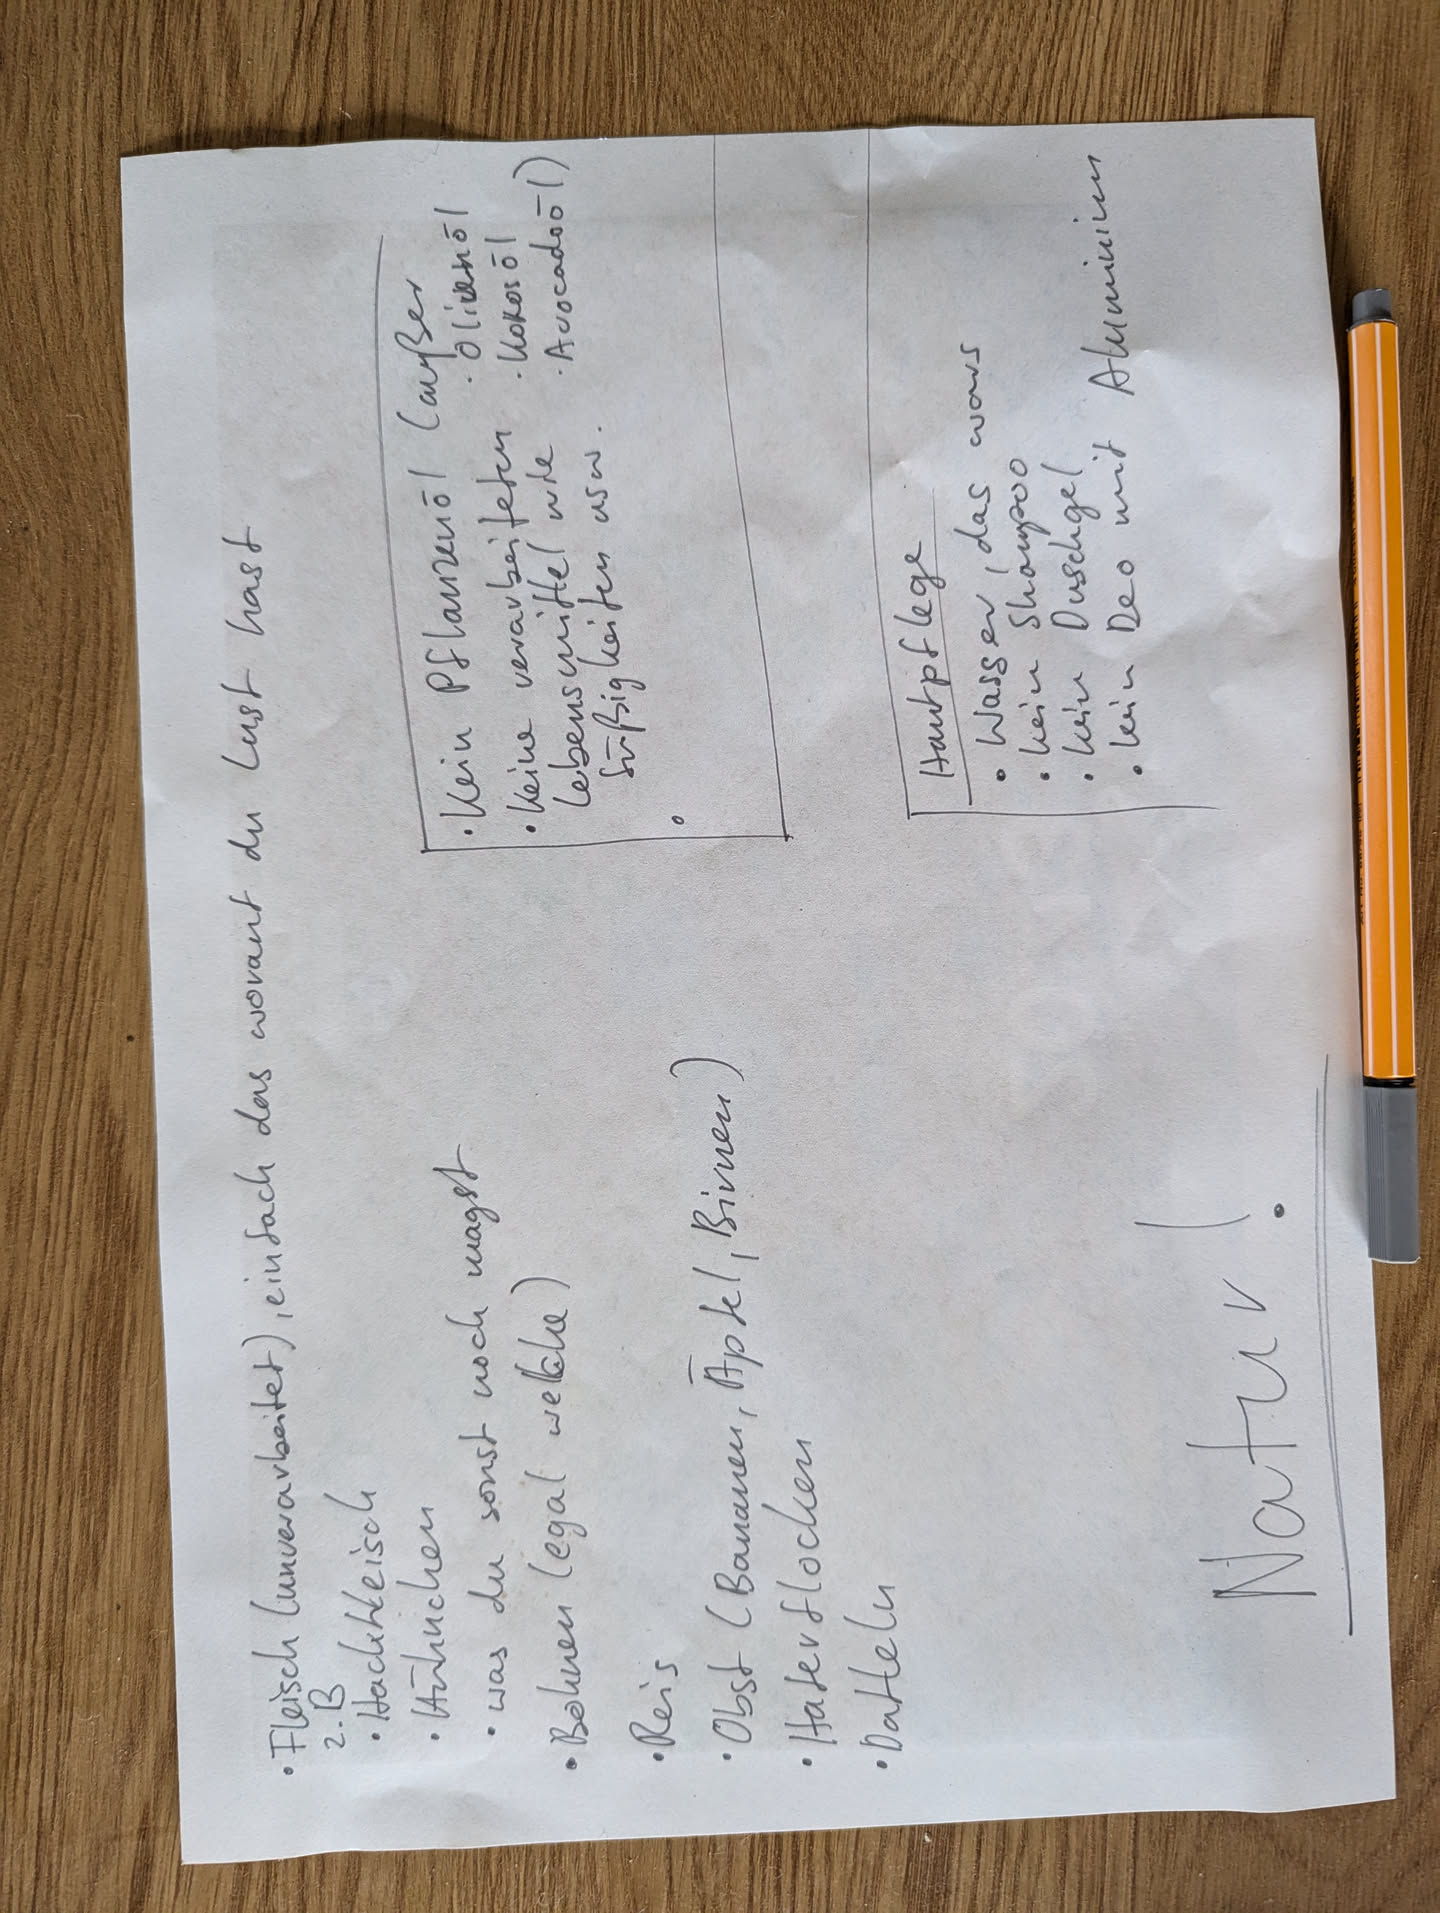 • Fleisch (unverarbeitet), einfach das worauf du Lust hast
z.B
• Hackfleisch
• Hühnchen
• was du sonst noch magst
• Bohnen (egal welche)
• Reis
• Obst (Bananen, Äpfel, Birnen)
• Haferflocken
• Datteln
Natur!
• Kein Pflanzenöl (außer
• Olivenöl
• Kokosöl
• Avocadoöl)
• Keine verarbeiteten
Lebensmittel wie
Süßigkeiten usw.
•
Hautpflege
• Wasser, das wars
• kein Shampoo
• kein Duschgel
• kein Deo mit Aluminium